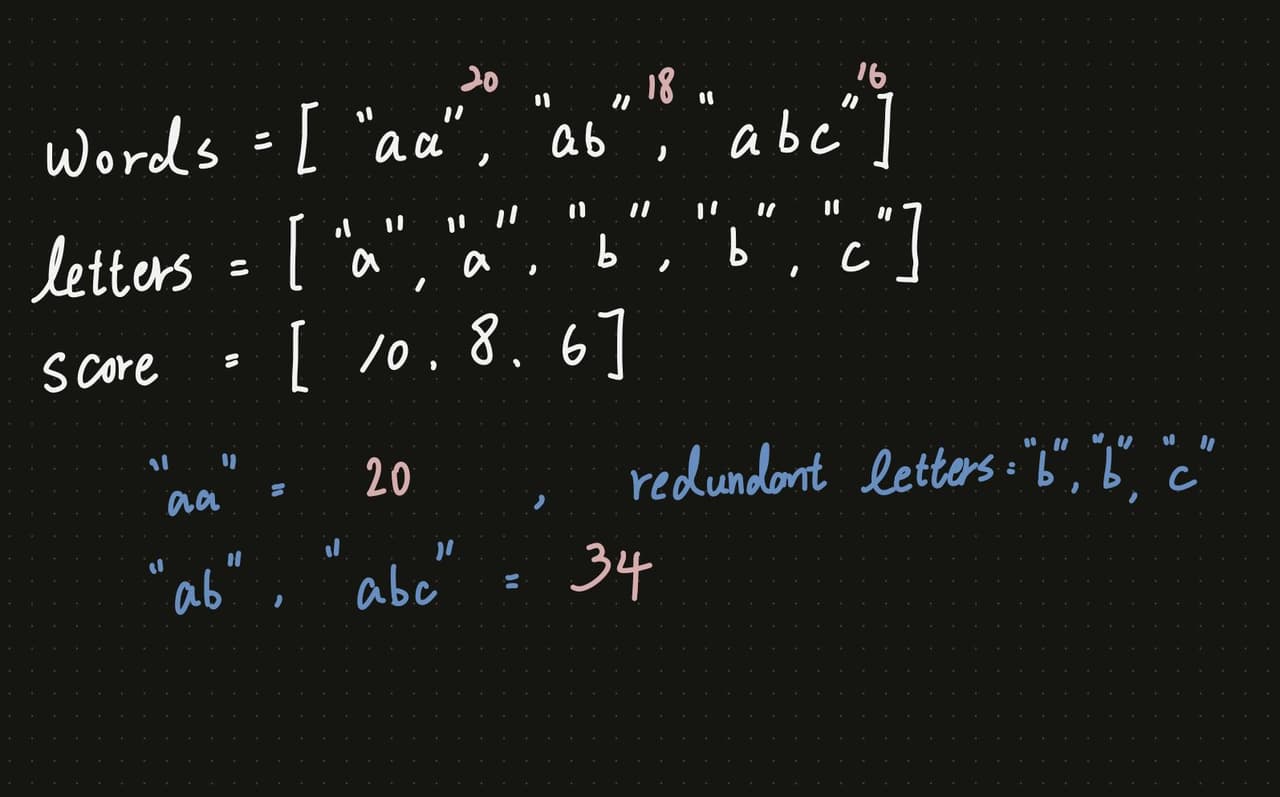 20 18 16
words = [ "aa", "ab", "abc"]
letters = [ "a", "a", "b", "b", "c"]
score = [ 10, 8, 6]
"aa" = 20 , redundant letters: "b", "b", "c"
"ab", "abc" = 34